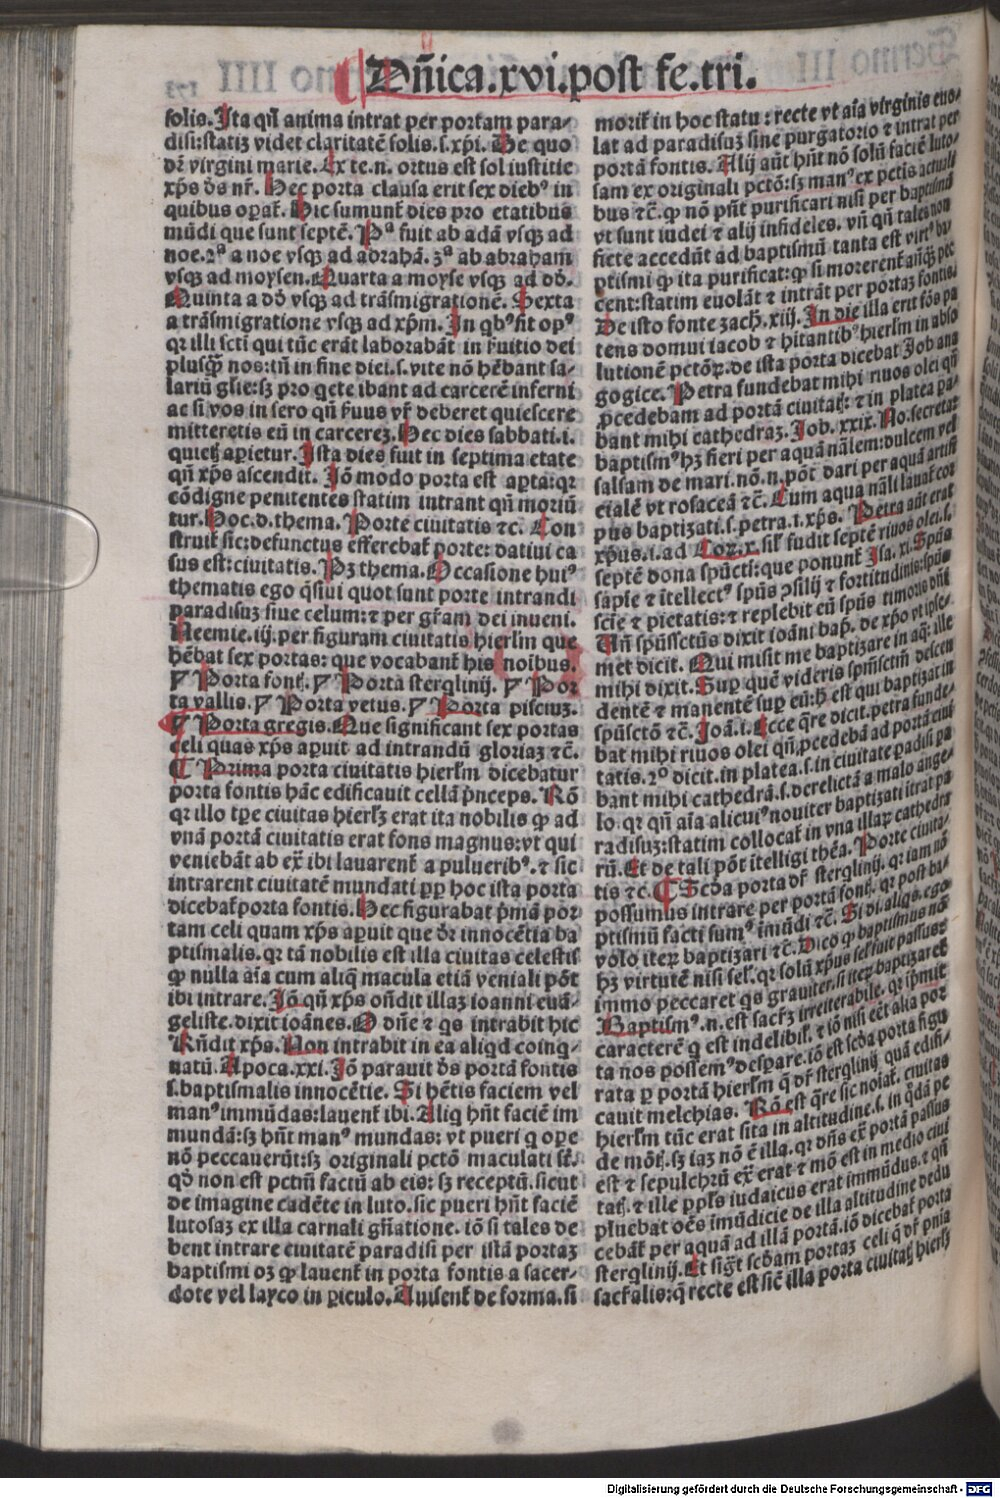 Dñica.xvi.post fe.tri.
solis. Ita qñ anima intrat per portam para-
disi:statiz videt claritatē solis.s.xp̄i. De quo
dr̄ virgini marie. Ex te.n. ortus est sol iustitie
xp̄s ds nr̄. Hec porta clausa erit sex diebꝰ in
quibus oparꝭ. Hic sumunt̄ dies pro etatibus
mūdi que sunt septē. Pª fuit ab adā vsqꝫ ad
noe.2ª a noe vsqꝫ ad abrahā. 3ª ab abraham
vsqꝫ ad moysen. Quarta a moyse vsqꝫ ad dd̄.
Quinta a dd̄ vsqꝫ ad trāsmigrationē. Sexta
a trāsmigratione vsqꝫ ad xp̄m. In qbꝰ fit opꝰ
qꝛ illi sc̄ti qui tūc erāt laborabāt in s̄uitio dei
plusqꝫ nos:tn̄ in fine diei.s.vite nō hēbant sa-
lariū glīe:sꝫ pro qete ibant ad carcerē inferni
ac si vos in sero qñ s̄uus vr̄ deberet quiescere
mitteretis eū in carcereꝫ. Hec dies sabbati.i.
quietꝭ apietur. Ista dies fuit in septima etate
qñ xp̄s ascendit. Iō modo porta est apta:qꝛ
cōdigne penitentes statim intrant qñ moriū
tur. Hoc.d.thema. Porte ciuitatis ꝛc. Con
struit̄ sic:defunctus efferebat̄ porte: datiui ca
sus est:ciuitatis. Pꝫ thema. Occasione huiꝰ
thematis ego q̄siui quot sunt porte intrandi
paradisuꝫ siue celum:ꝛ per grām dei inueni.
Neemie.iij.per figuram ciuitatis hierlm̄ que
hēbat sex portas: que vocabant̄ his noibus.
Porta fontꝭ. Porta sterqlinij. Por
ta vallis. Porta vetus. Porta pisciuꝫ.
Porta gregis. Que significant sex portas
celi quas xp̄s apuit ad intrandū gloriaꝫ ꝛc.
¶ Prima porta ciuitatis hierlm̄ dicebatur
porta fontis hāc edificauit cellā p̄nceps. Rō
qꝛ illo tpe ciuitas hierlꝫ erat ita nobilis ꝙ ad
vnā portā ciuitatis erat fons magnus:vt qui
veniebāt ab ex̄ ibi lauarent̄ a puluerib. ꝛ sic
intrarent ciuitatē mundati ꝓp hoc ista porta
dicebat̄ porta fontis. Hec figurabat p̄mā por
tam celi quam xp̄s apuit que dr̄ innocētia ba
ptismalis.qꝛ tā nobilis est illa ciuitas celestis
ꝙ nulla aīa cum aliq̄ macula etiā veniali pōt
ibi intrare. Iō qñ xp̄s oñdit illaꝫ ioanni euā-
geliste.dixit ioānes. O dñe ꝛ qs intrabit hic
Rñdit xp̄s. Non intrabit in ea aliqd coinq-
natū. Apoca.xxi. Iō parauit ds portā fontis
s.baptismalis innocētie. Si hētis faciem vel
manꝰ immūdas:lauent̄ ibi. Aliq hn̄t faciē im
mundā:sꝫ hn̄t manꝰ mundas: vt pueri q ope
nō peccauerūt:sꝫ originali pctō maculati st̄.
qd non est pctm̄ factū ab eis: sꝫ receptū.sicut
de imagine cadēte in luto.sic pueri hn̄t faciē
lutosaꝫ ex illa carnali gn̄atione. iō si tales de
bent intrare ciuitatē paradisi per istā portaꝫ
baptismi oꝫ ꝙ lauent̄ in porta fontis a sacer-
dote vel layco in piculo. Auisent̄ de forma. si
morit̄ in hoc statu : recte vt aīa virginis euo-
lat ad paradisuꝫ sine purgatorio ꝛ intrat per
portā fontis. Alij aūt hn̄t nō solū faciē luto-
sam ex originali pctō:sꝫ manꝰ ex pctis actuali
bus ꝛc̄.ꝙ nō pn̄t purificari nisi per baptismū
vt sunt iudei ꝛ alij infideles. vñ qñ tales non
ficte accedūt ad baptismū tanta est virtꝰ ba
ptismi ꝙ ita purificat:ꝙ si morerent̄ anq̄ꝫ pec
cent:statim euolāt ꝛ intrāt per portaꝫ fontis.
De isto fonte zach.xiij. In die illa erit fōs pa
tens domui iacob ꝛ hitantibꝰ hierlm̄ in abso
lutionē pctōꝝ.de ista porta dicebat Job ana
gogice. Petra fundebat mihi riuos olei qñ
ꝓcedebam ad portā ciuitatꝭ: ꝛ in platea pa-
bant mihi cathedraꝫ. Job. xxix. No.secretaꝫ
baptismꝰ hꝫ fieri per aquā nālem:dulcem vel
salsam de mari.nō.n.pōt dari per aquā artifi
cialē vt rosaceā ꝛc̄. Cum aqua nāli lauat̄ cor
pus baptizati.s.petra.i.xp̄s. Petra aūt erat
xp̄us.i.ad Cor.x. sil̄ fudit septē riuos olei.s.
septē dona spūcti:que ponunt̄ Isa.xi. Spūs
sapīe ꝛ itellectꝰ spūs ꝯsilij ꝛ fortitudinis:spūs
scīe ꝛ pietatis: ꝛ replebit eū spūs timoris dñi
Vñ spūssctūs dixit ioāni bap. de xp̄o vt ipse-
met dicit. Qui misit me baptizare in aq̄: ille
mihi dixit. Sup quē videris spm̄sctm̄ descen
dentē ꝛ manentē sup eū:h est qui baptizat in
spūsctō ꝛc̄. Joā.i. Ecce q̄re dicit.petra funde-
bat mihi riuos olei qñ ꝓcedebā ad portā ciui
tatis.2º dicit.in platea.s.in ciuitate padisi pa
bant mihi cathedrā.s.derelictā a malo ange-
lo.qꝛ qñ aīa alicuiꝰ nouiter baptizati itrat pa
radisuꝫ:statim collocat̄ in vna illaꝝ cathedra
rū. Et de tali pōt itelligi thēa. Porte ciuita-
tis ꝛc. ¶ Scda porta dr̄ sterqlinij. qꝛ iam nō
possumus intrare per portā fontꝭ. qꝛ post ba-
ptismū facti sumꝰ imūdi ꝛc̄. Si di. aliqs. ego
volo iteꝝ baptizari ꝛc̄. Dico ꝙ baptismus nō
hꝫ virtutē nisi sel̄.qꝛ solū xp̄us sel̄ fuit passus:
immo peccaret qs grauiter.si iteꝝ baptizaret̄
Baptismꝰ.n.est sacr̄ꝫ irreiterabile. qꝛ ip̄mit
caracterē q est indelibil̄. ꝛ iō nisi eēt alia por
ta nos possemꝰ despare.iō est scda porta figu
rata p portā hierlm̄ q̄ dr̄ sterqlinij quā edifi-
cauit melchias. Rō est q̄re sic noiat̄. ciuitas
hierlm̄ tūc erat sita in altitudine.s. in q̄dā pe
de mōtꝭ.sꝫ iaꝫ nō ē illa.qꝛ dñs ex̄ portā passus
est ꝛ sepulchrū ex̄ erat ꝛ mō est in medio ciui
tatꝭ. ꝛ ille ppl̄s iudaicus erat immūdus.ꝛ qñ
pluebat oēs imūdicie de illa altitudine dedu
cebāt̄ per aquā ad illā portā.iō dicebat̄ porta
sterqlinij. Et sigt̄ scdam portaꝫ celi q̄ dr̄ pnīa
sacr̄alis:q̄ recte est sic̄ illa porta ciuitatꝭ hierlꝫ
Digitalisierung gefördert durch die Deutsche Forschungsgemeinschaft - DFG